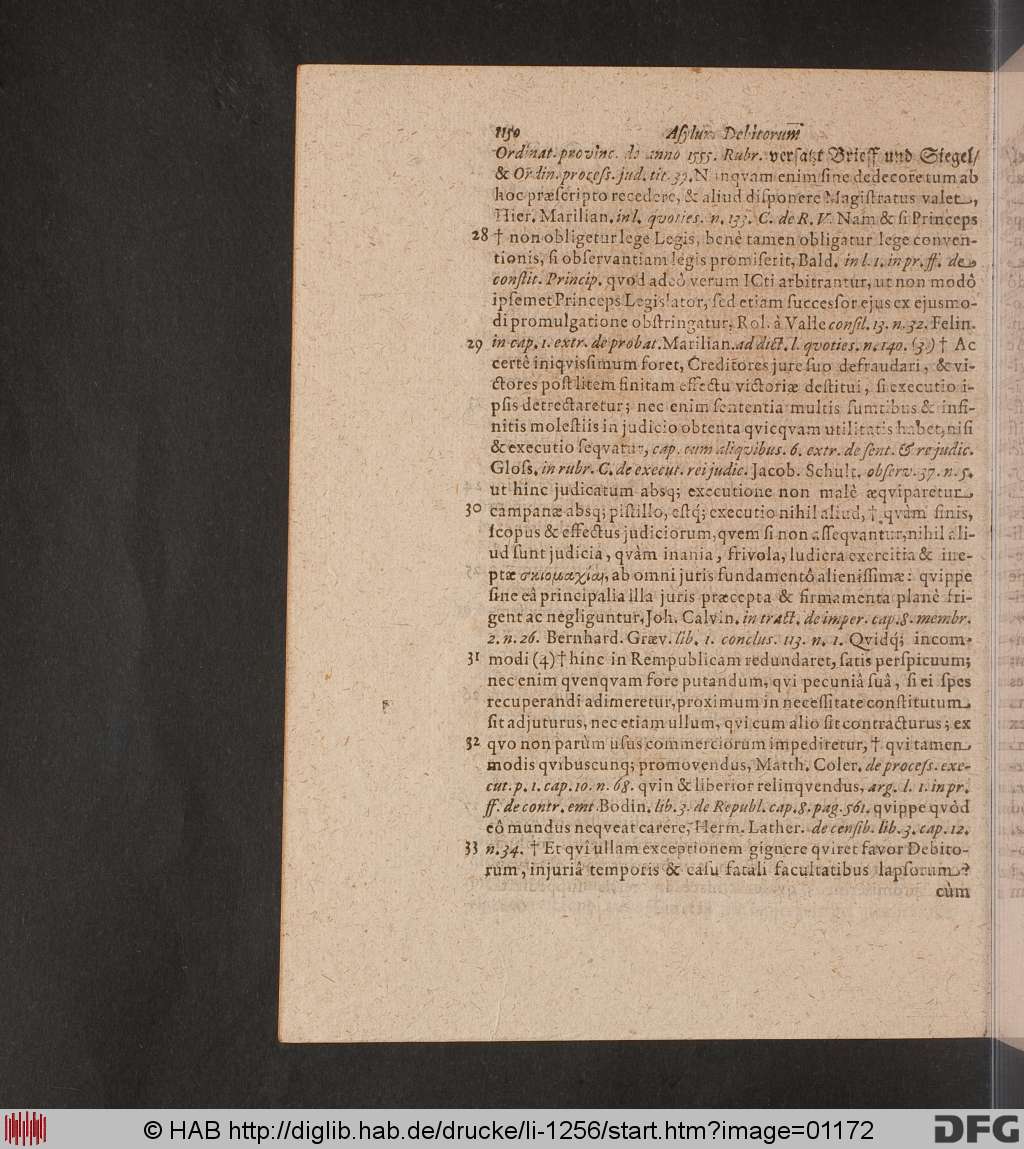 1150 Asylum Debitorum
Ordinat. provinc. de anno 1555. Rubr. versatzt Brieff und Siegel/
& Ordin. process. jud. tit. 39. Nunqvam enim sine dedecore tum ab
hoc præscripto recedere, & aliud disponere Magistratus valet,
Hier. Marilian. in l. qvoties. n. 133. C. de R. V. Nam & si Princeps
28 † non obligetur lege Legis, benè tamen obligatur lege conven-
tionis, si observantiam legis promiserit, Bald. in l. 1. in pr. ff. de
constit. Princip. qvod adeò verum ICti arbitrantur, ut non modò
ipsemet Princeps Legislator, sed etiam successor ejus ex ejusmo-
di promulgatione obstringatur, Rol. à Valle consil. 13. n. 32. Felin.
29 in cap. 1. extr. de probat. Marilian. ad dict. l. qvoties. n. 140. (3.) † Ac
certè iniqvissimum foret, Creditores jure suo defraudari, & vi-
ctores post litem finitam effectu victoriæ destitui, si executio i-
psis detrectaretur; nec enim sententia multis sumtibus & infi-
nitis molestiis in judicio obtenta qvicqvam utilitatis habet, nisi
& executio seqvatur, cap. cum aliqvibus. 6. extr. de sent. & re judic.
Gloss. in rubr. C. de execut. rei judic. Jacob. Schult. observ. 37. n. 5.
ut hinc judicatum absq; executione non malè æqviparetur
30 campanæ absq; pistillo, estq; executio nihil aliud, † qvàm finis,
scopus & effectus judiciorum, qvem si non asseqvantur, nihil ali-
ud sunt judicia, qvàm inania, frivola, ludicra exercitia & ine-
ptæ σκιομαχίαι, ab omni juris fundamentô alienissimæ: qvippe
sine eâ principalia illa juris præcepta & firmamenta planè fri-
gent ac negliguntur, Joh. Calvin. in tract. de imper. cap. 8. membr.
2. n. 26. Bernhard. Græv. lib. 1. conclus. 113. n. 1. Qvidq; incom-
31 modi (4) † hinc in Rempublicam redundaret, satis perspicuum;
nec enim qvenqvam fore putandum, qvi pecuniâ suâ, si ei spes
recuperandi adimeretur, proximum in necessitate constitutum
sit adjuturus, nec etiam ullum, qvi cum alio sit contracturus; ex
32 qvo non parùm usus commerciorum impediretur, † qvi tamen
modis qvibuscunq; promovendus, Matth. Coler. de process. exe-
cut. p. 1. cap. 10. n. 68. qvin & liberior relinqvendus, arg. l. 1. in pr.
ff. de contr. emt. Bodin. lib. 3. de Republ. cap. 8. pag. 561. qvippe qvôd
eô mundus neqveat carere, Herm. Lather. de censib. lib. 3. cap. 12.
33 n. 34. † Et qvi ullam exceptionem gignere qviret favor Debito-
rum, injuriâ temporis & casu fatali facultatibus lapsorum?
cùm
© HAB http://diglib.hab.de/drucke/li-1256/start.htm?image=01172
DFG